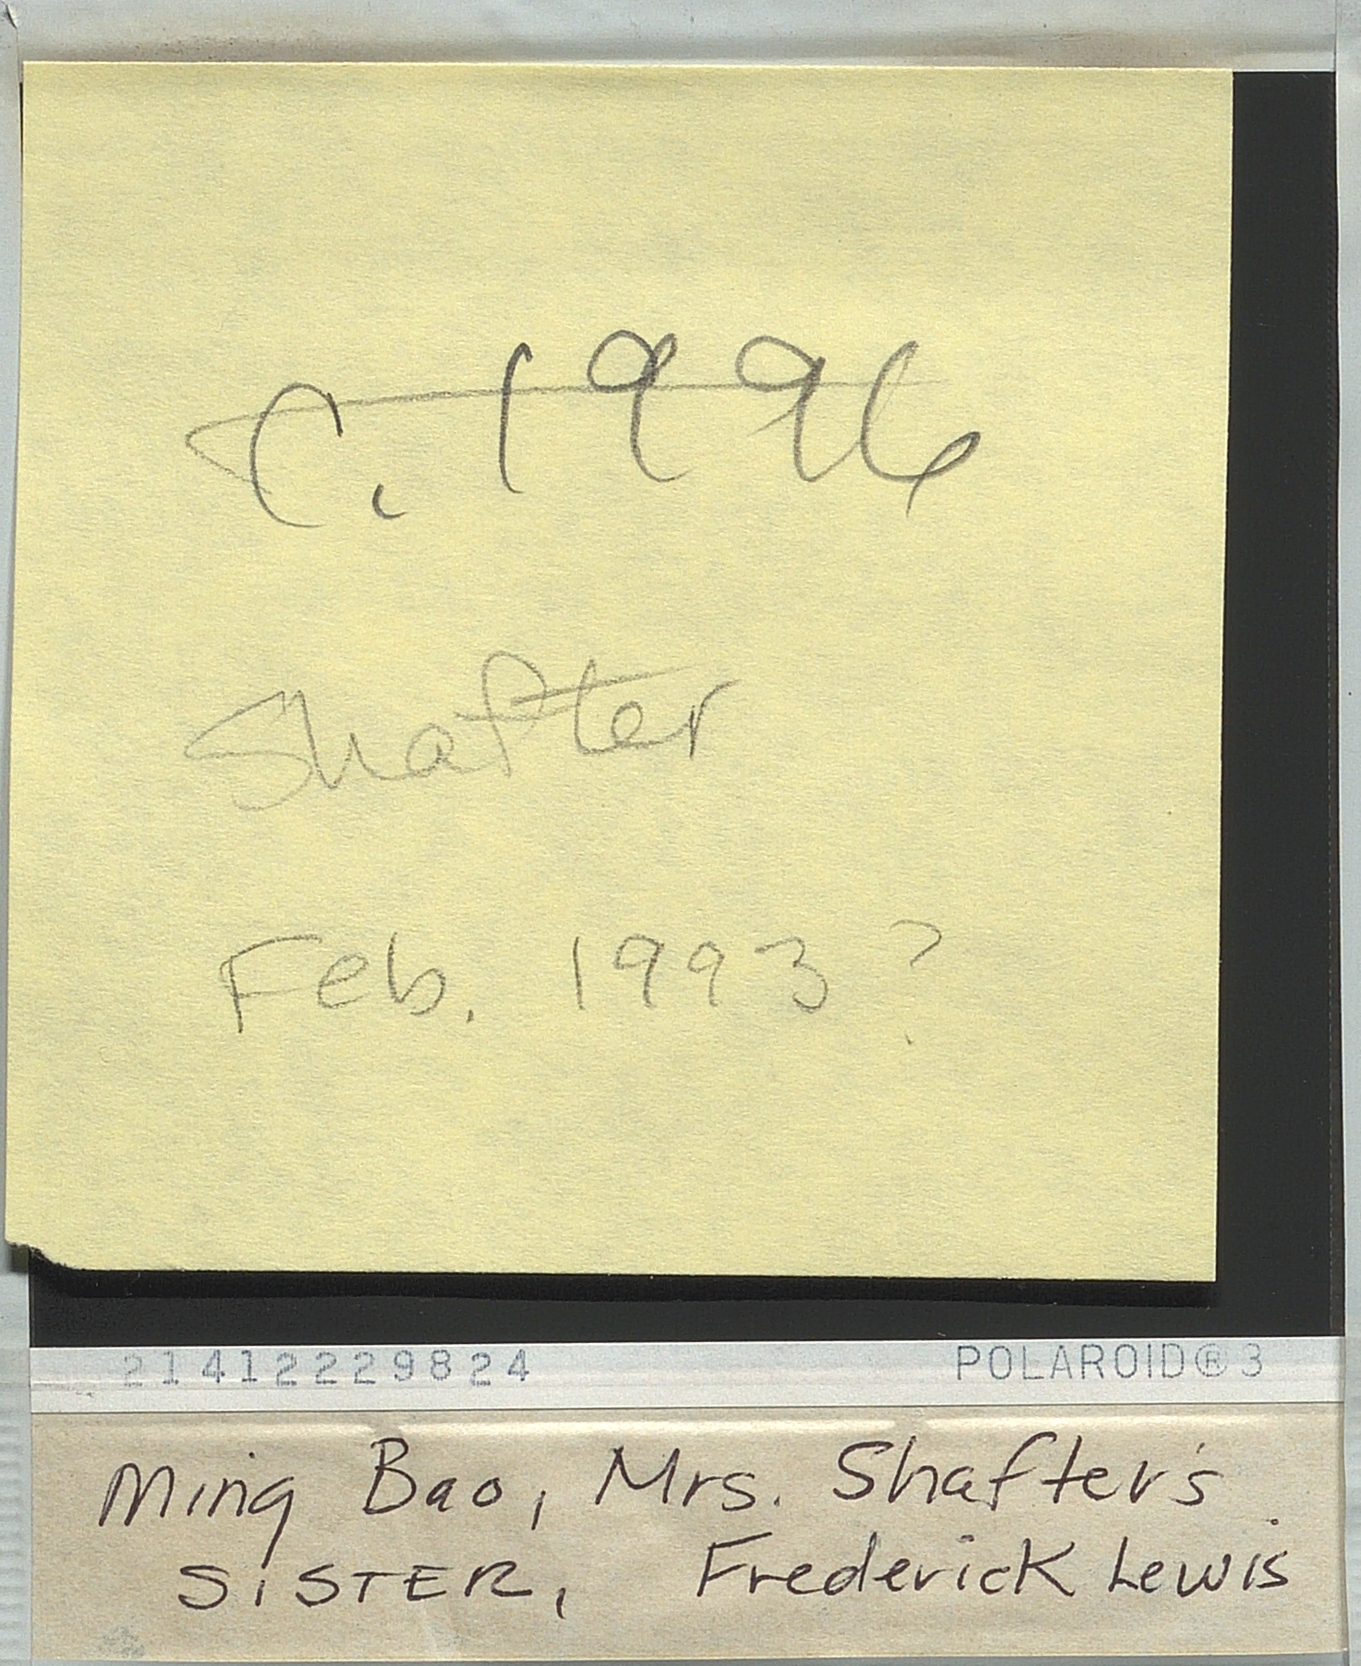 c. 1996
Shafter
Feb. 1993?
21412229824 POLAROID®3
Ming Bao, Mrs. Shafter's
SISTER, Frederick Lewis